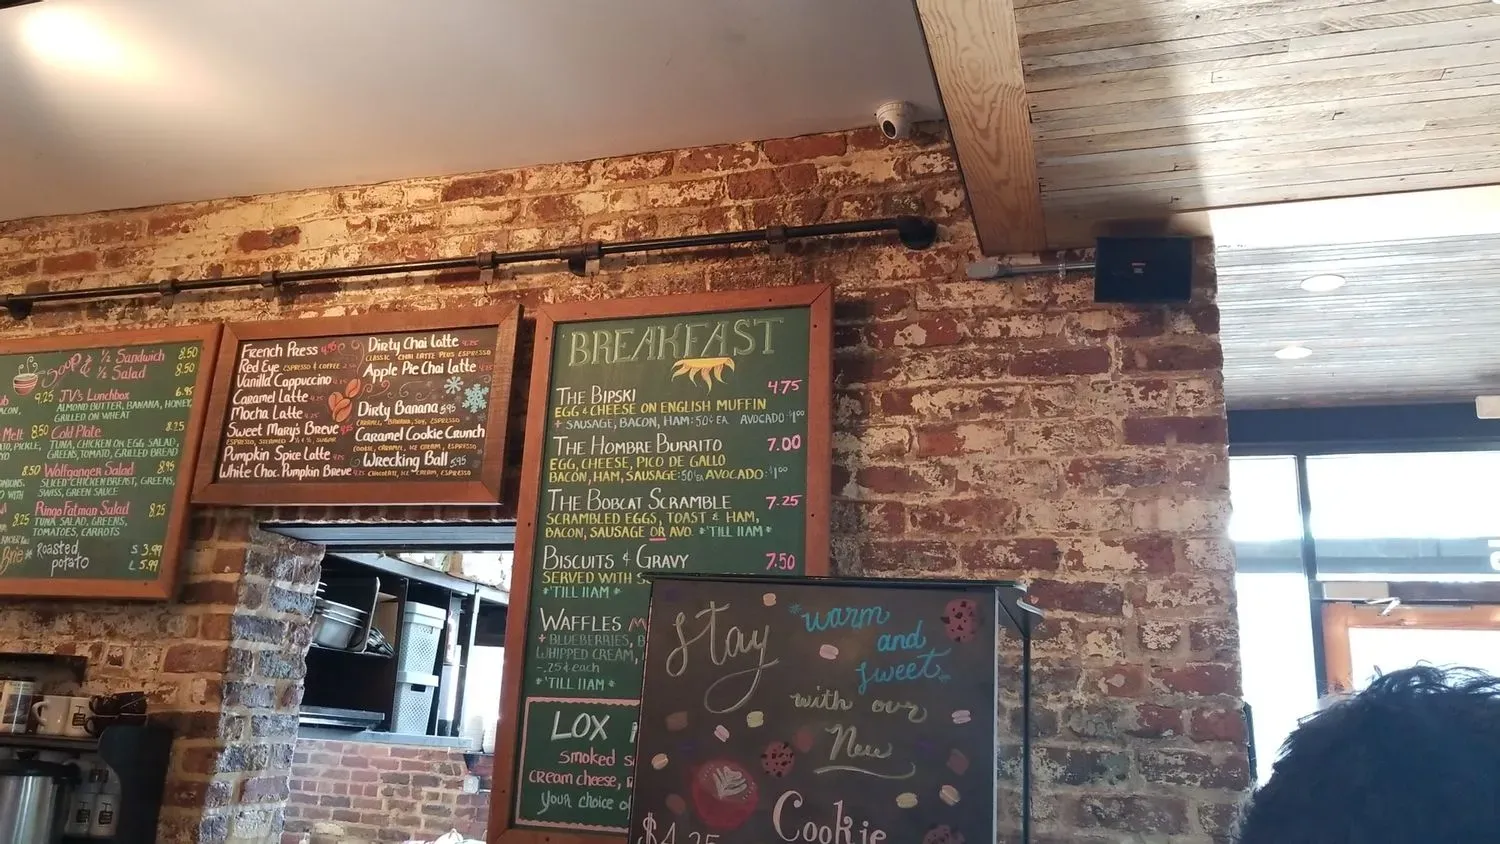 Soup & ½ Sandwich 8.50
½ Salad 8.50
9.25 JV's Lunchbox 6.95
ALMOND BUTTER, BANANA, HONEY,
GRILLED ON WHEAT
Melt 8.50 Cold Plate 8.25
TUNA, CHICKEN OR EGG SALAD,
GREENS, TOMATO, GRILLED BREAD
8.50 Wolfganger Salad 8.95
SLICED CHICKEN BREAST, GREENS,
SWISS, GREEN SAUCE
Ringo Fatman Salad 8.25
8.25 TUNA SALAD, GREENS,
TOMATOES, CARROTS
Brie Roasted S 3.99
potato L 5.99
French Press
Red Eye ESPRESSO & COFFEE
Vanilla Cappuccino
Caramel Latte
Mocha Latte
Sweet Mary's Breve
Pumpkin Spice Latte
White Choc. Pumpkin Breve
Dirty Chai Latte
CLASSIC CHAI LATTE PLUS ESPRESSO
Apple Pie Chai Latte
Dirty Banana 5.95
CARAMEL, BANANA, SOY, ESPRESSO
Caramel Cookie Crunch
COOKIE, CARAMEL, ICE CREAM, ESPRESSO
Wrecking Ball 5.95
CHOCOLATE, ICE CREAM, ESPRESSO
BREAKFAST
THE BIPSKI 4.75
EGG & CHEESE ON ENGLISH MUFFIN
+ SAUSAGE, BACON, HAM: 50¢ EA AVOCADO: $1.00
THE HOMBRE BURRITO 7.00
EGG, CHEESE, PICO DE GALLO
BACON, HAM, SAUSAGE: 50¢ EA AVOCADO: $1.00
THE BOBCAT SCRAMBLE 7.25
SCRAMBLED EGGS, TOAST & HAM,
BACON, SAUSAGE OR AVO. *'TILL 11AM*
BISCUITS & GRAVY 7.50
SERVED WITH
*'TILL 11AM*
WAFFLES
+ BLUEBERRIES,
WHIPPED CREAM,
-.25¢ each
*'TILL 11AM*
LOX
smoked
cream cheese,
your choice
Stay
*warm
and
sweet
with our
New
Cookie
$4.25